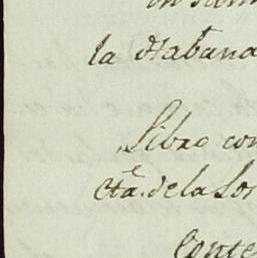 la Habana
Libro con
Cta. de la Son
Conte